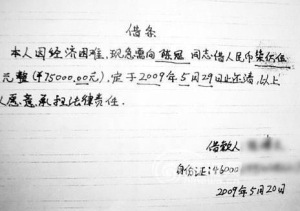 借条
本人因经济困难,现急需向陈冠同志借人民币柒仟伍
元整(¥75000.00元),定于2009年5月29日止还清,以上
愿意承担法律责任.
借款人
身份证:46000
2009年5月20日